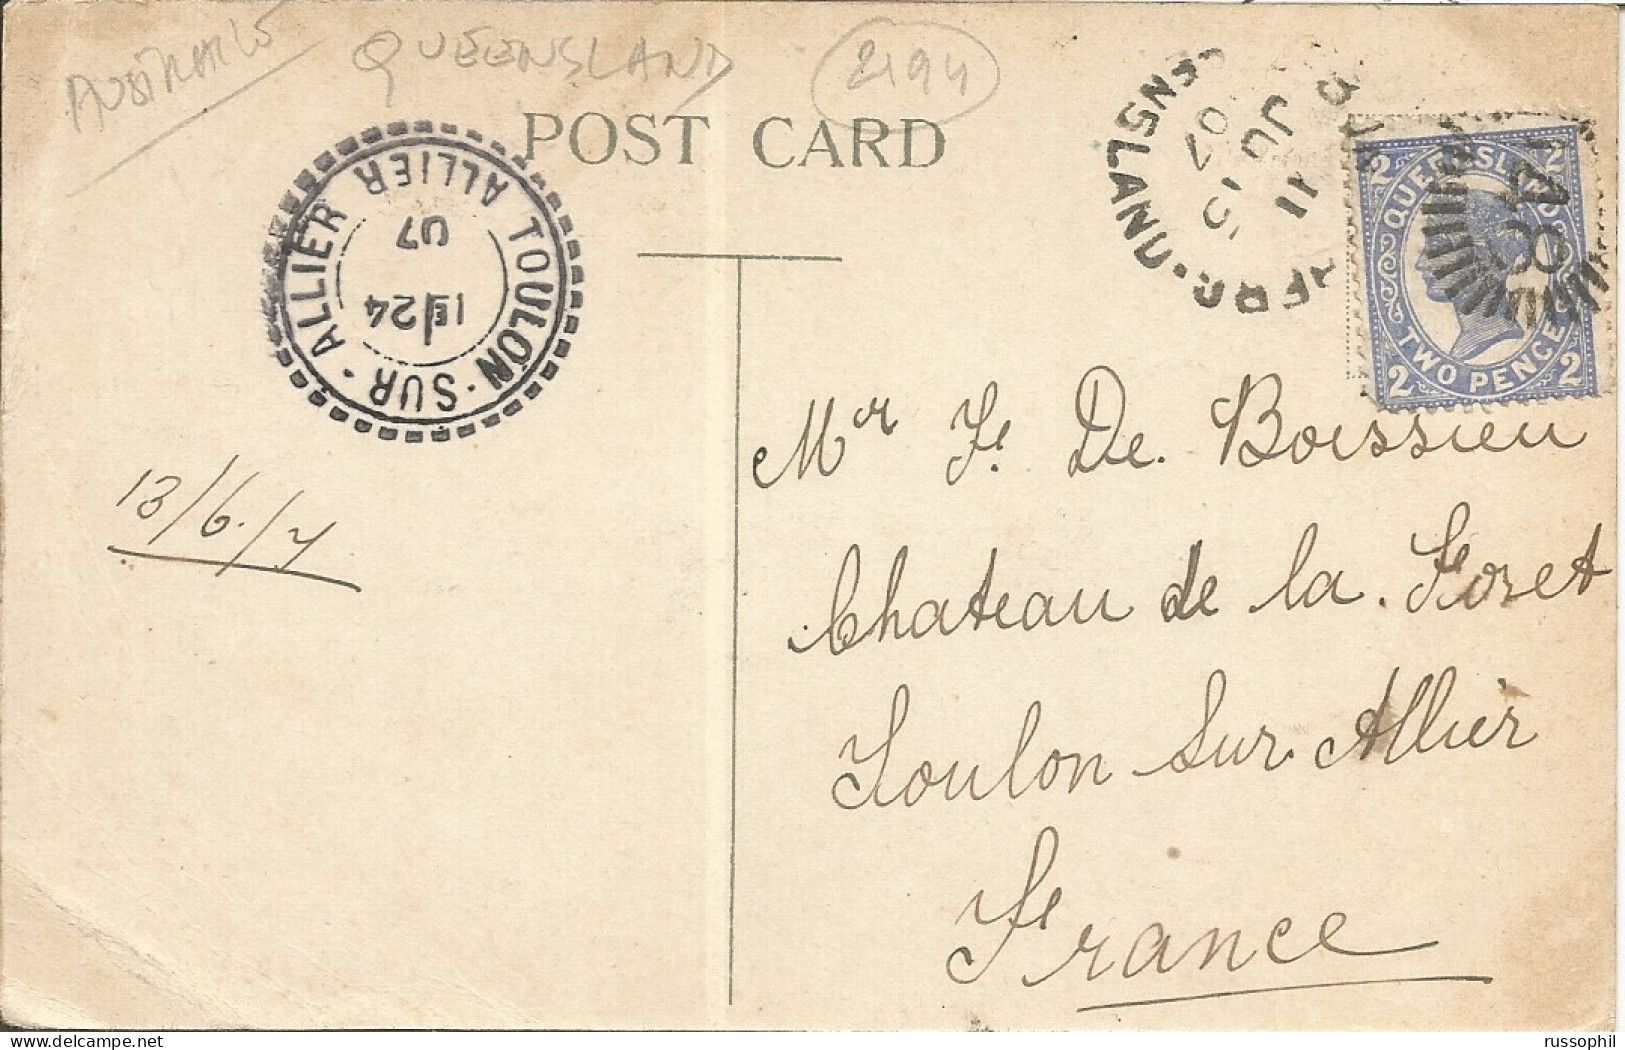 AUSTRALIE
QUEENSLAND
2194
POST CARD
TOULON-SUR-ALLIER
ALLIER
1E 24
07
ENSLAND
JU
11
07
148
QUEENSLAND
2 2
TWO PENCE
2 2
13/6/7
Mr F. De. Boissieu
Chateau de la. Foret
Toulon Sur Allier
France
russophil